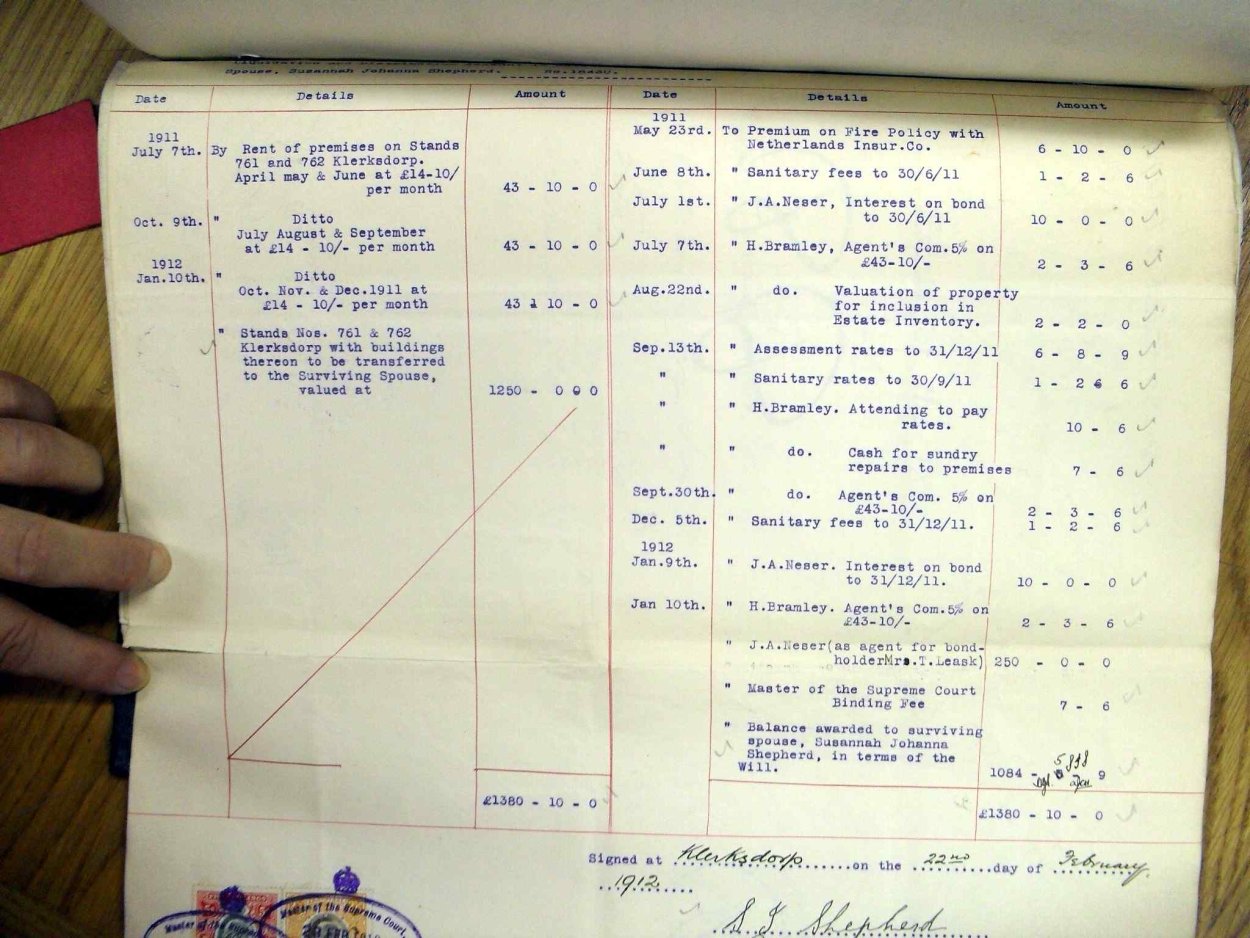 Spouse, Susannah Johanna Shepherd.
Date Details Amount
1911
July 7th. By Rent of premises on Stands
761 and 762 Klerksdorp.
April may & June at £14-10/
per month 43 - 10 - 0
Oct. 9th. " Ditto
July August & September
at £14 - 10/- per month 43 - 10 - 0
1912
Jan.10th. " Ditto
Oct. Nov. & Dec.1911 at
£14 - 10/- per month 43 - 10 - 0
" Stands Nos. 761 & 762
Klerksdorp with buildings
thereon to be transferred
to the Surviving Spouse,
valued at 1250 - 0 0 0
£1380 - 10 - 0
Date Details Amount
1911
May 23rd. To Premium on Fire Policy with
Netherlands Insur.Co. 6 - 10 - 0
June 8th. " Sanitary fees to 30/6/11 1 - 2 - 6
July 1st. " J.A.Neser, Interest on bond
to 30/6/11 10 - 0 - 0
July 7th. " H.Bramley, Agent's Com.5% on
£43-10/- 2 - 3 - 6
Aug.22nd. " do. Valuation of property
for inclusion in
Estate Inventory. 2 - 2 - 0
Sep.13th. " Assessment rates to 31/12/11 6 - 8 - 9
" " Sanitary rates to 30/9/11 1 - 2 6
" " H.Bramley. Attending to pay
rates. 10 - 6
" " do. Cash for sundry
repairs to premises 7 - 6
Sept.30th. " do. Agent's Com. 5% on
£43-10/- 2 - 3 - 6
Dec. 5th. " Sanitary fees to 31/12/11. 1 - 2 - 6
1912
Jan.9th. " J.A.Neser. Interest on bond
to 31/12/11. 10 - 0 - 0
Jan 10th. " H.Bramley. Agent's Com.5% on
£43-10/- 2 - 3 - 6
" J.A.Neser(as agent for bond-
holderMrs.T.Leask) 250 - 0 - 0
" Master of the Supreme Court
Binding Fee 7 - 6
" Balance awarded to surviving
spouse, Susannah Johanna
Shepherd, in terms of the
Will. 1084 - 9
£1380 - 10 - 0
Signed at Klerksdorp on the 22nd day of February
1912
S J Shepherd
Master of the Supreme Court,